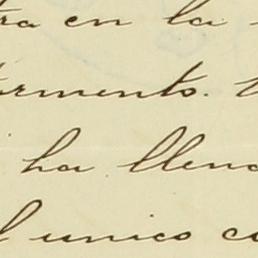 ra en la
rmento.
ha llena
l unico co